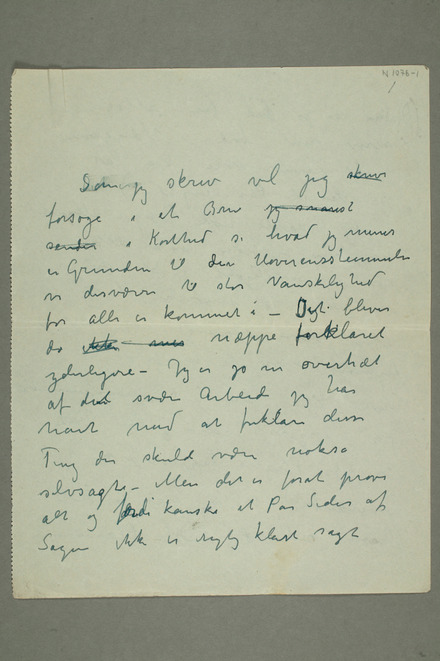 N 1076-1
1
Som jeg skrev vil jeg skrive
forsøge i et Brev jeg snarest
sender i Korthed si hvad jeg mener
er Grunden til den Uoverensstemmelse
vi desværre til stor Vanskelighed
for alle er kommet i – Det bliver
da ikke næppe forklaret
yderligere – Jeg er jo nu overtræt
af det svære Arbeid jeg har
havt med at forklare disse
Ting der skulde være nokså
selvsagte – Men det er for at prøve
alt og fordi kanske et Par Sider af
Sagen ikke er rigtig klart sagt